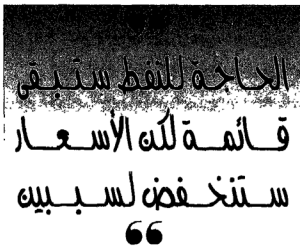 الحاجة للنفط ستبقى
قائمة لكن الأسعار
ستنخفض لسببين
“